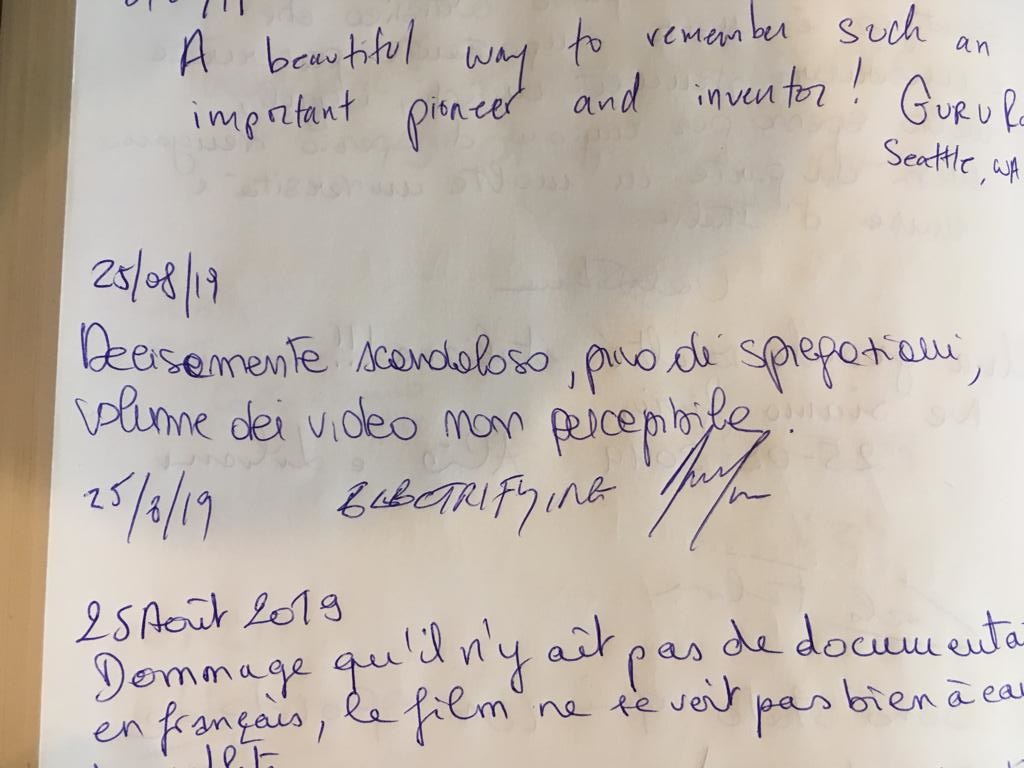 A beautiful way to remember such an
important pioneer and inventor! GURU
Seattle, WA
25/08/19
Decisamente scandaloso, privo di spiegazioni,
volume dei video non percepibile.
25/8/19 ELECTRIFYING
25 Août 2019
Dommage qu'il n'y ait pas de documenta
en français, le film ne se voit pas bien à